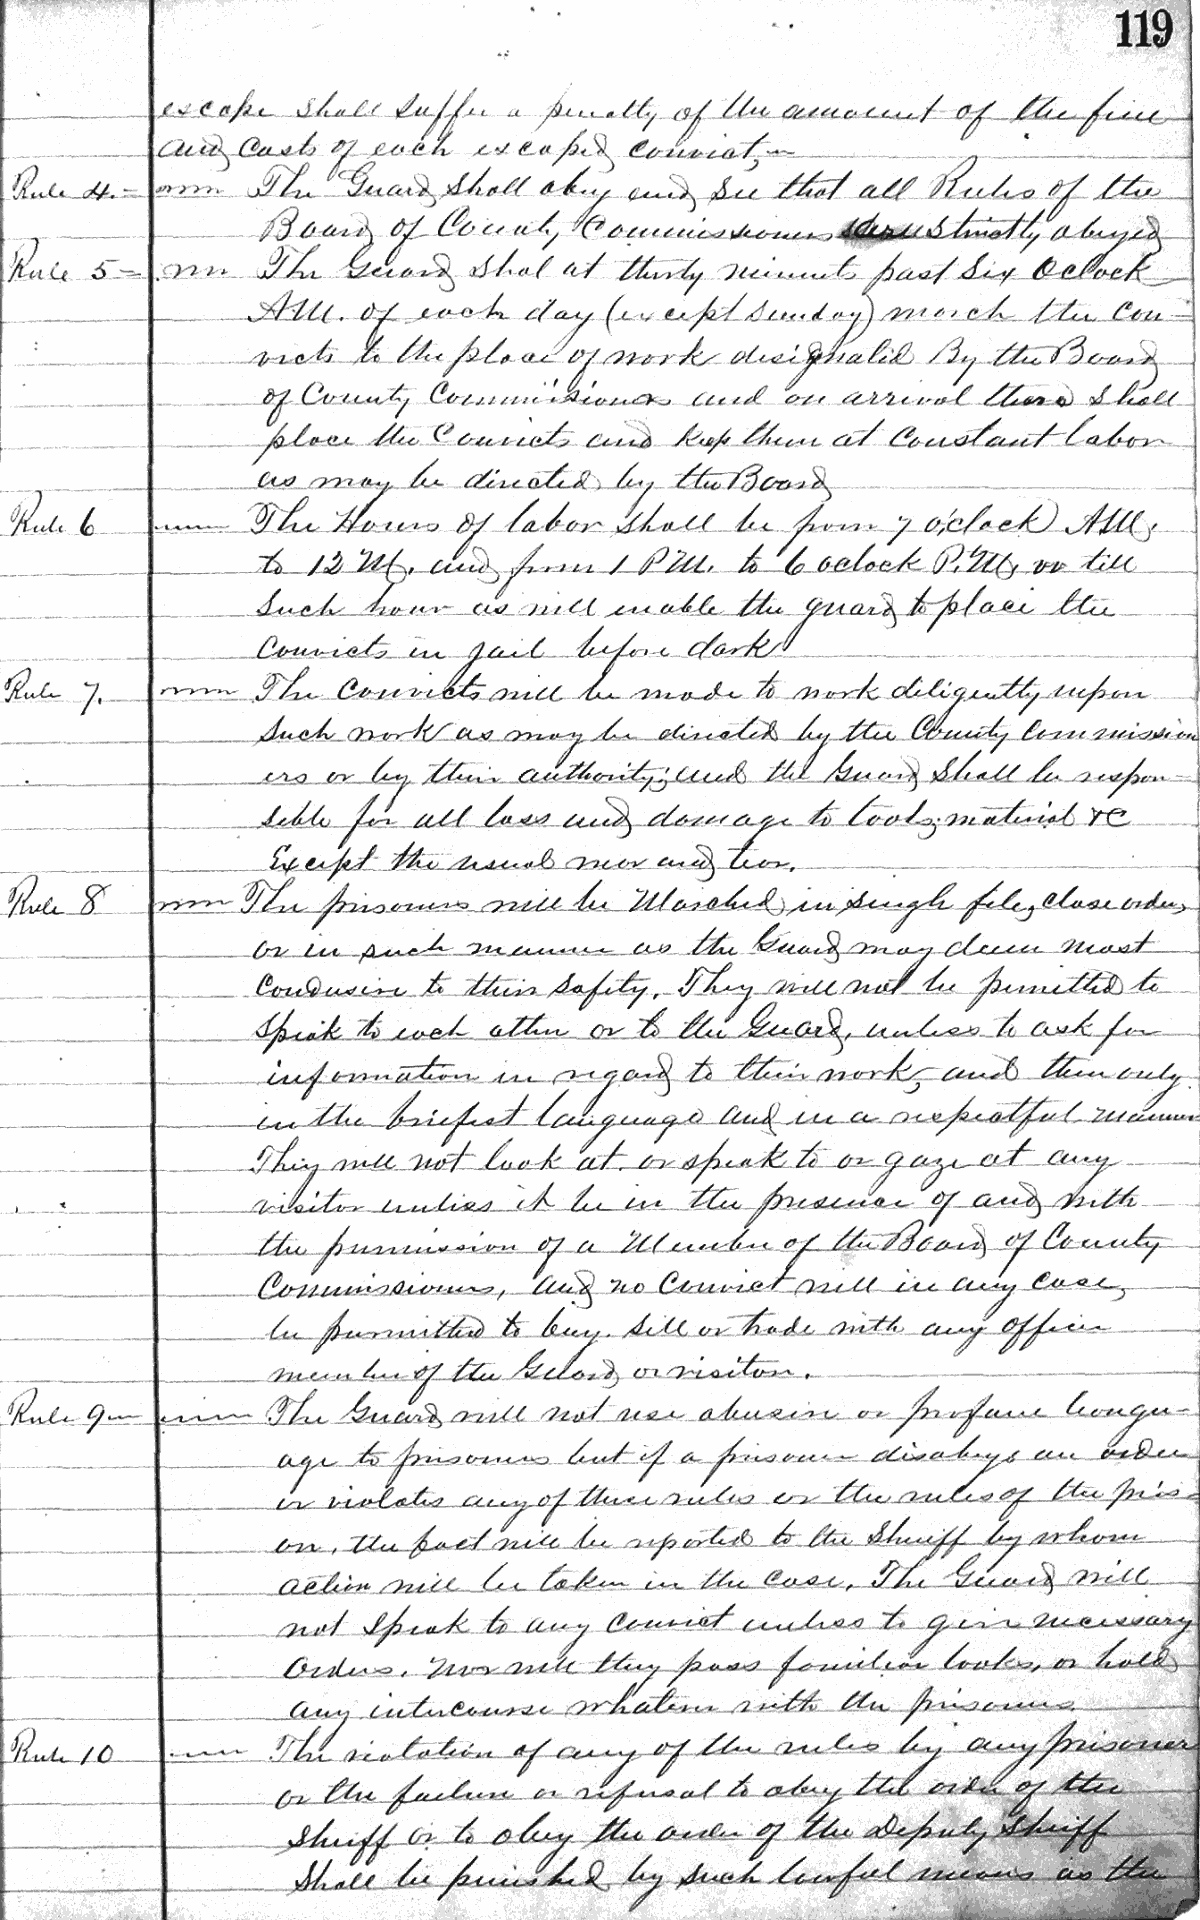 119
escape shall suffer a penalty of the amount of the fine
and costs of each escaped convict,
Rule 4. The Guard shall obey and see that all Rules of the
Board of County Commissioners strictly obeyed
Rule 5 The Guard shal at thirty minuts past Six Oclock
A.M. of each day (except Sunday) march the con-
victs to the place of work designated By the Board
of County Commissioners and on arrival there Shall
place the Convicts and keep them at Constant labor
as may be directed by the Board
Rule 6 The Hours of labor shall be from 7 o'clock A.M.
to 12 M. and from 1 P.M. to 6 oclock P.M. or till
such hour as will enable the guard to place the
Convicts in jail before dark
Rule 7. The Convicts will be made to work diligently upon
such work as may be directed by the County Commission
ers or by their authority; and the Guard Shall be respon-
sible for all loss and damage to tools, material &C
Except the usual wear and tear.
Rule 8 The prisoners will be Marched in single file, close order,
or in such manner as the Guard may deem most
Condusive to their Safety. They will not be permitted to
Speak to each other or to the Guard, unless to ask for
information in regard to their work, and then only
in the briefest language and in a respectful manner
They will not look at or speak to or gaze at any
visitor unless it be in the presence of and with
the permission of a Member of the Board of County
Commissioners, and no Convict will in any case,
be permitted to buy. sell or trade with any officer
member of the Guard or visitor.
Rule 9 The Guard will not use abusive or profane langu-
age to prisoners but if a prisoner disobeys an order
or violates any of these rules or the rules of the pris-
on, the fact will be reported to the Sheriff by whom
action will be taken in the case. The Guard will
not Speak to any convict unless to give necessary
Orders. Nor will they pass familiar looks, or hold
any intercourse whatever with the prisoners.
Rule 10 The violation of any of the rules by any prisoner
or the failure or refusal to obey the order of the
Sheriff or to obey the order of the Deputy Sheriff
Shall be punished by such lawful means as the